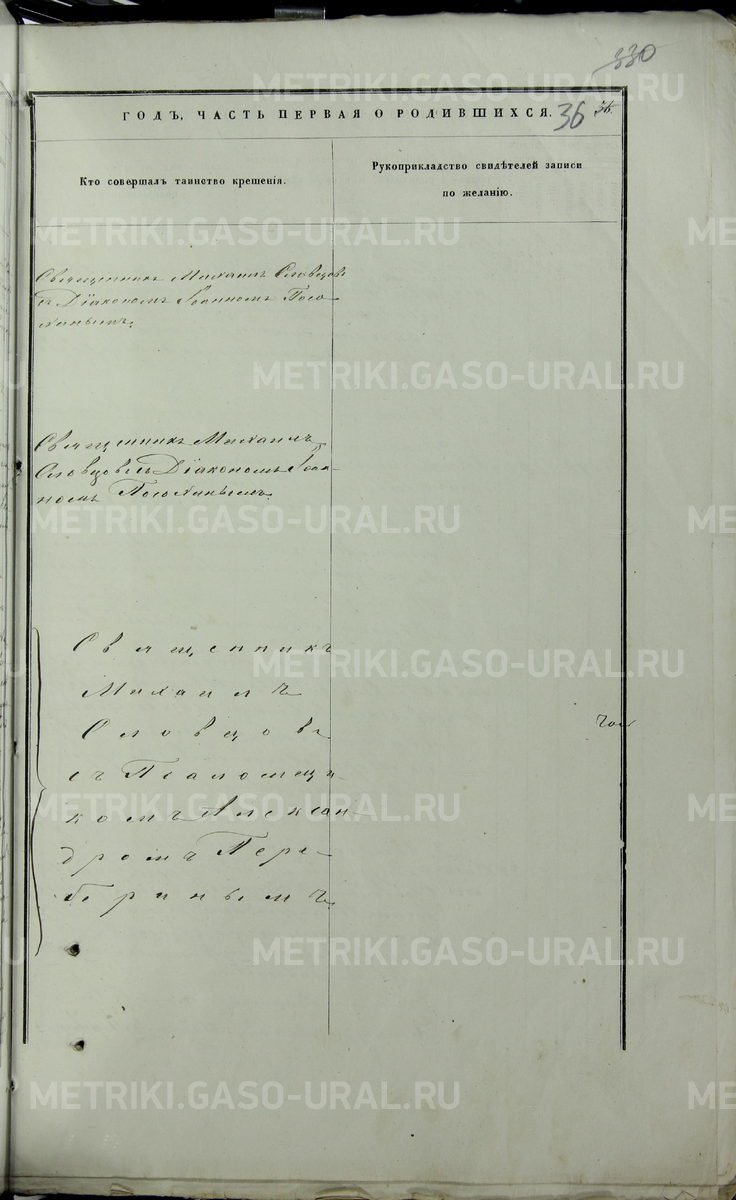 330
ГОДЪ, ЧАСТЬ ПЕРВАЯ О РОДИВШИХСЯ. 36 36.
Кто совершалъ таинство крещенія.
Рукоприкладство свидѣтелей записи
по желанію.
Священникъ Михаилъ Словцовъ
съ Діакономъ Іоанномъ
Священникъ Михаилъ
Словцовъ съ Діакономъ Іоан-
номъ
Священникъ
Михаилъ
Словцовъ
съ Псаломщи-
комъ Алексан-
дромъ Пере-
беринымъ.
METRIKI.GASO-URAL.RU